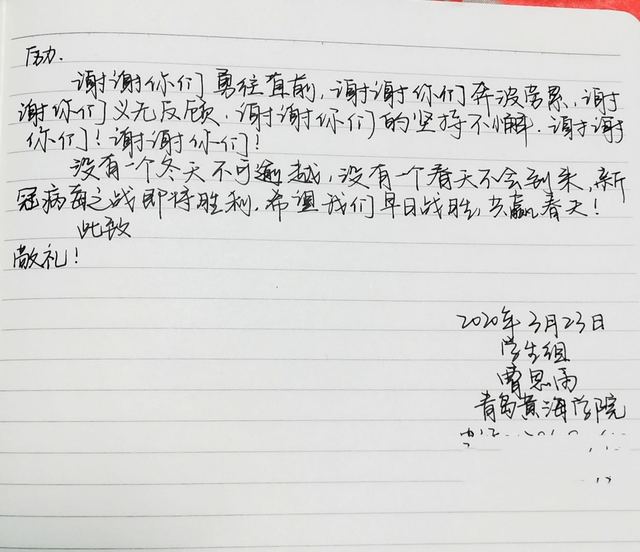 励.
谢谢你们勇往直前,谢谢你们奔波劳累,谢谢
谢你们义无反顾.谢谢你们的坚持不懈.谢谢
你们!谢谢你们!
没有一个冬天不可逾越,没有一个春天不会到来.新
冠病毒之战即将胜利.希望我们早日战胜,共赢春天!
此致
敬礼!
2020年3月23日
学生组
曹思雨
青岛黄海学院